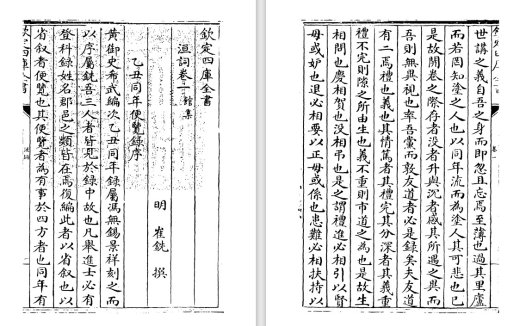 欽定四庫全書
洹詞卷一 館集
明 崔銑 撰
乙丑同年便覽錄序
黃御史希武編次乙丑同年録屬馮無錫景祥刻之而
以序屬銑吾三人者皆見於錄中故也凡舉進士必有
登科録姓名郡邑之類皆在焉復編此者以省叙也以
省叙者便覽也其便覽者為有事於四方者也同年有
世講之義自吾之身而即忽且忘焉至諱也過其里廬
而若罔知塗之人也以同年流而為塗人其可悲也已
是故開卷之際存者没者升與沉者感其所遇之異而
吾則無異視也率吾黨而敦友道者必是録矣夫友道
有二焉禮也義也其情篤者其禮完其分深者其義重
禮不完則隙之所由生也義不重則市道之為也是故生
相問也慶相賀也没相弔也是之謂禮進必相引以賢
毋或妒也退必相要以正毋或係也患難必相扶持以